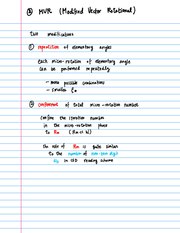 ④ MVR (Modified Vector Rotational)
Two modifications
① repetition of elementary angles
Each micro-rotation of elementary angle
can be performed repeatedly
→ more possible combinations
→ smaller ξm
② confinement of total micro-rotation number
Confine the iteration number
in the micro-rotation phase
to Rm (Rm << W)
the role of Rm is quite similar
to the number of non-zero digit
ND in CSD recoding scheme